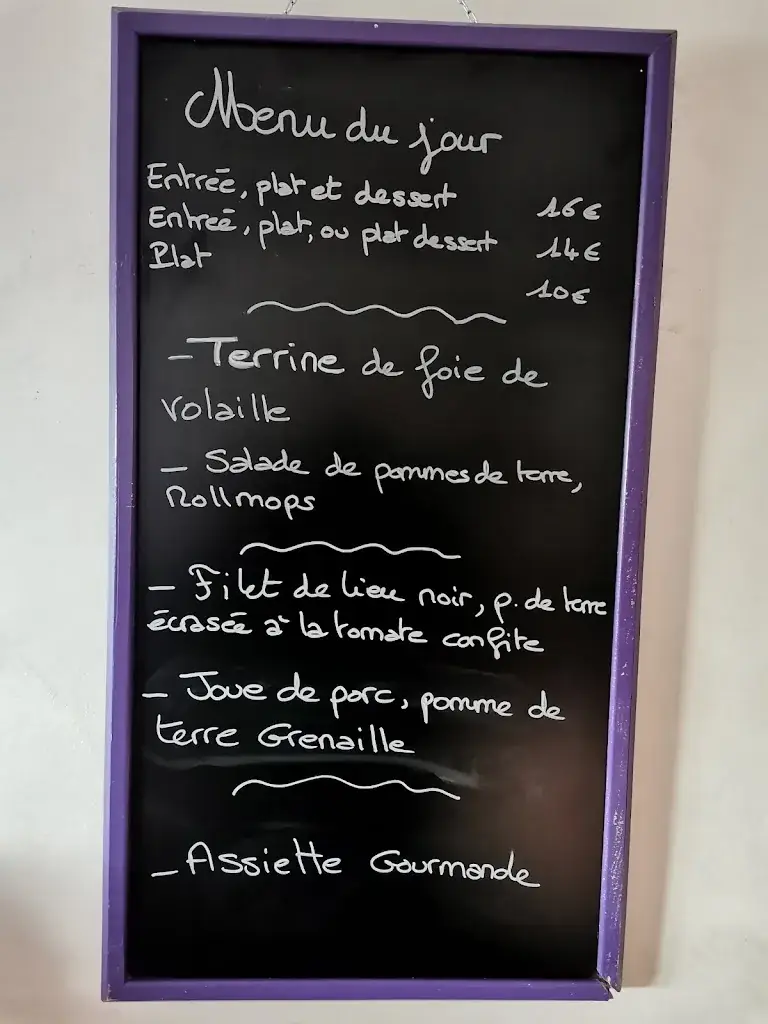 Menu du jour
Entrée, plat et dessert 16€
Entrée, plat, ou plat dessert 14€
Plat 10€
- Terrine de foie de
volaille
- Salade de pommes de terre,
Rollmops
- Filet de lieu noir, p. de terre
écrasée à la tomate confite
- Joue de porc, pomme de
terre Grenaille
- Assiette Gourmande